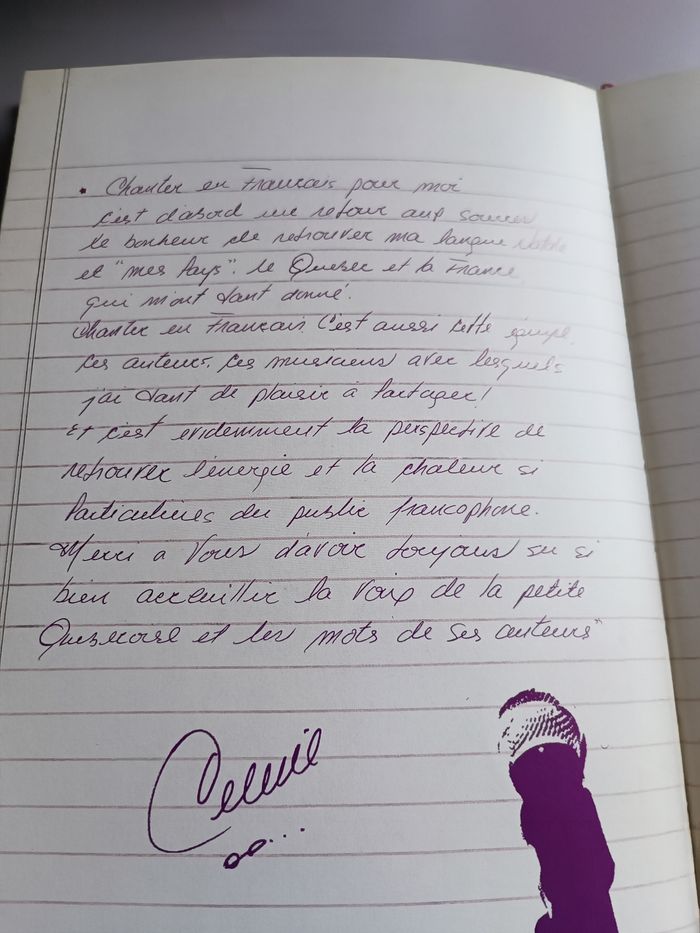 . Chanter en Francais pour moi
c'est d'abord un retour aux sources
le bonheur de retrouver ma langue Natale
et "mes Pays". le Quebec et la France
qui m'ont tant donné.
Chanter en Francais C'est aussi cette équipe,
ces auteurs. ces musiciens avec lesquels
j'ai tant de plaisir à Partager!
Et c'est evidemment la perspective de
retrouver l'énergie et la chaleur si
Particulières du public francophone.
Merci a Vous d'avoir toujours su si
bien acceuillir la Voix de la petite
Quebecoise et les mots de ses auteurs"
Celine